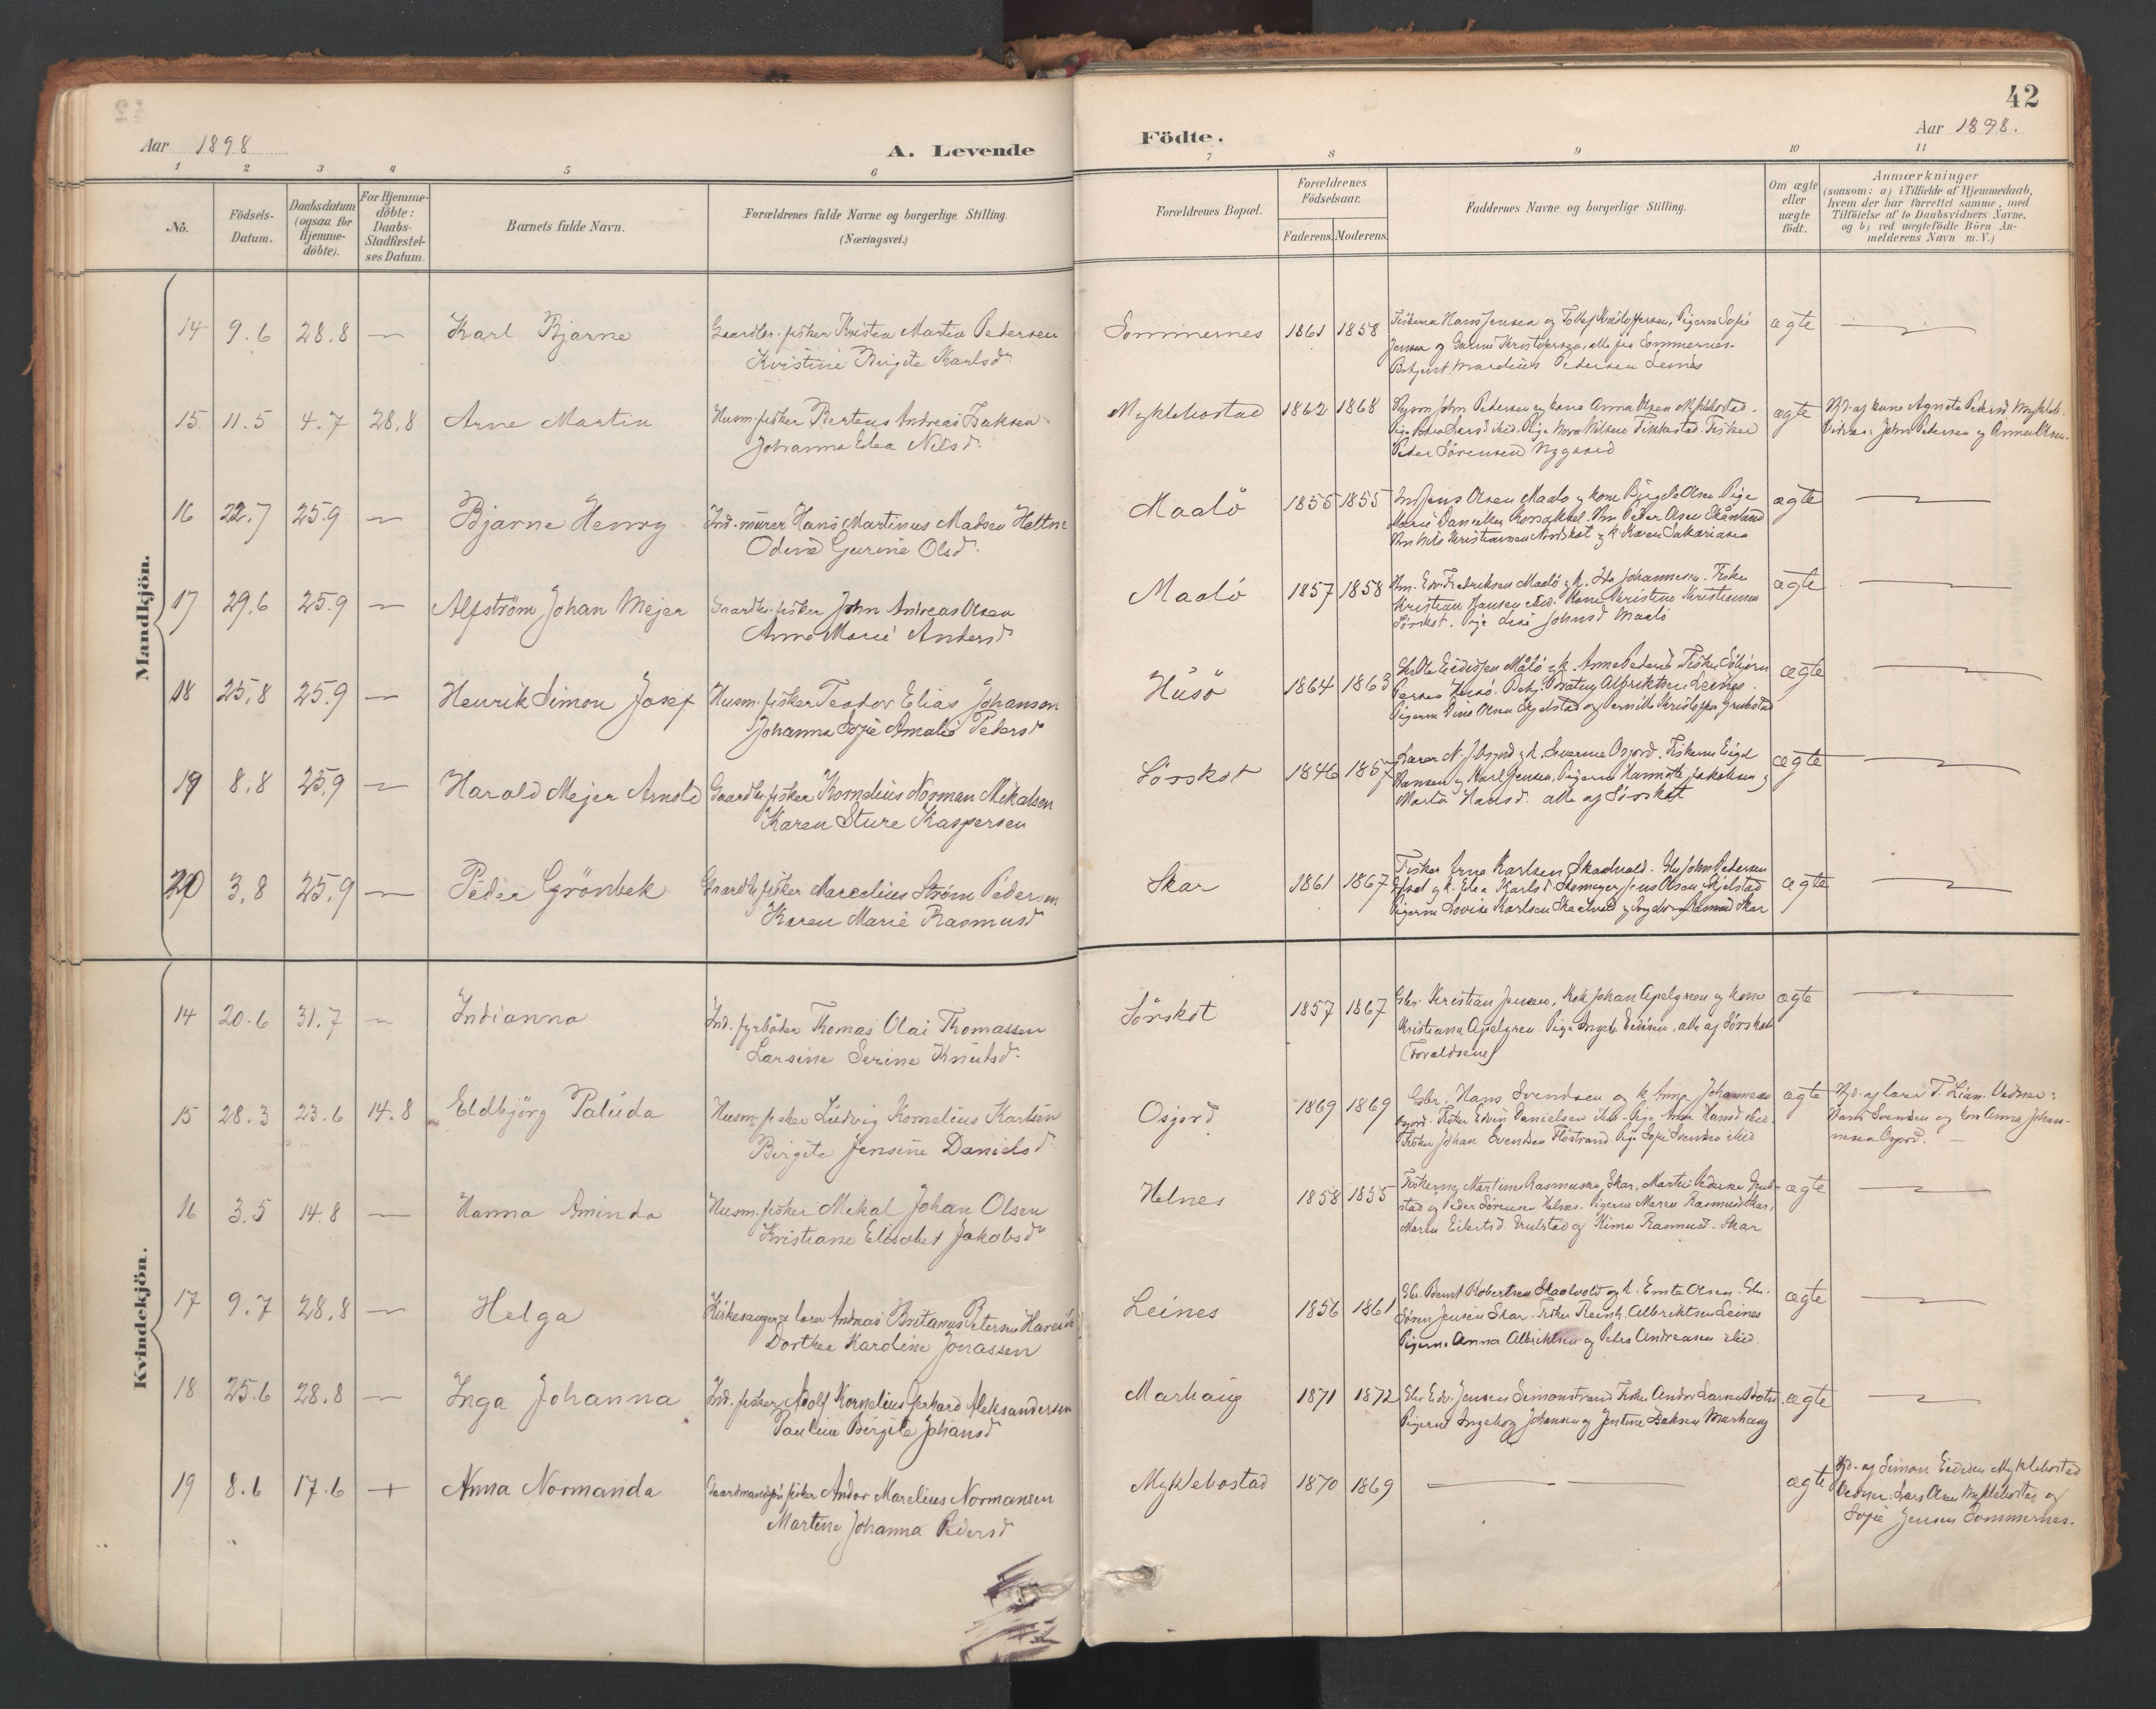 42
Aar 1898
A. Levende
Födte.
Aar 1898.
1 2 3 4 5 6 7 8 9 10 11
No.
Födsels-
Datum.
Daabsdatum
(ogsaa for
Hjemme-
döbte).
For Hjemme-
döbte:
Daabs-
Stadfæstel-
ses Datum.
Barnets fulde Navn.
Forældrenes fulde Navne og borgerlige Stilling.
(Næringsvei.)
Forældrenes Bopæl.
Forældrenes
Födselsaar.
Faderens. Moderens.
Faddernes Navne og borgerlige Stilling.
Om ægte
eller
uægte
födt.
Anmærkninger
(saasom: a) i Tilfælde af Hjemmedaab,
hvem der har forrettet samme, med
Tilföielse af to Daabsvidners Navne.
og b) ved uægtefödte Börn An-
melderens Navn m. V.)
Mandkjön.
14 9.6 28.8 — Karl Bjarne Gaardbr. fisker Kristen Martin Pedersen
Kristine Birgite Karlsd.
Sommernes 1861 1858 Fiskerne Hans Jensen og Kristoffersen, Pigerne Sofie
Jensen og Kristofersen, alle fra Sommernes.
Marelius Pedersen Leines
ægte —
15 11.5 4.7 28.8 Arne Martin Husm. fisker Berteus Andreas Isaksen
Johanna Edea Nilsd.
Myklebostad 1862 1868 John Pedersen og kone Anna Olsen Myklebostad.
Pige Larsd ibid. Pige Nora Nilsen Finkestad. Fisker
Peder Sörensen Nygaard
ægte Hjd. af kone Agnete Pedersd Mykleb.
Vidner: John Pedersen og Anna Olsen.
16 22.7 25.9 — Bjarne Henry Ind. murer Hans Martinus Madsen Heltne
Odine Gurine Olsd.
Maalö 1855 1855 Ind Jens Olsen Maalö og kone Birgite Olsen Pige
Marie Danielsen. Peder Olsen Skånland
Nils Kristiansen Nordskot og k Karen Sakariasen
ægte —
17 29.6 25.9 — Alfström Johan Mejer Gaardbr. fisker John Andreas Olsen
Anne Marie Andersd
Maalö 1857 1858 Edv. Fredriksen Maalö og k. Ida Johannesen. Fisker
Kristian Hansen ibid. Kone Kristine Kristiansen
Sörskot. Pige Lise Johnsd Maalö
ægte —
18 25.8 25.9 — Henrik Simon Josef Husm. fisker Teodor Elias Johansen
Johanna Sofie Amalie Pedersd
Husö 1864 1863 Gbr Ole Eidissen Målö og k. Anne Pedersd Fisker
Husö. Albriktsen Leines.
Pigerne Dina Olsen Skjelstad og Pernille Kristoffer. Grubstad
ægte —
19 8.8 25.9 — Harald Mejer Arnold Gaardbr. fisker Kornelius Norman Mikalsen
Karen Sture Kaspersen
Sörskot 1846 1857 Lærer N. J. Osjord og k. Osjord. Fiskerne
Hansen og Karl Jensen, Pigerne Jakobsen og
Marta Hansd. alle af Sörskot
ægte —
20 3.8 25.9 — Peder Grönbek Gaardbr fisker Marcelius Ström Pedersen
Karen Marie Rasmusd
Skar 1861 1867 Fisker Arne Karlsen Skaalvold. Gbr John Pedersen
og k. Elea Karlsd Skomager Jens Olsen Skjelstad
Pigerne Lovise Karlsen Skaalvold og Rasmusd Skar
ægte —
Kvindekjön.
14 20.6 31.7 — Indianna Ind. fyrböter Thomas Olai Thomassen
Larsine Serine Knutsd.
Sörskot 1857 1867 Gbr. Kristian Jensen, Johan Apelgreen og kone
Kristiana Apelgren. Pige alle af Sörskot
(Foraldrene)
ægte —
15 28.3 23.6 14.8 Eldbjörg Paluda Husm. fisker Ludvig Kornelius Karlsen
Birgite Jensine Danielsd
Osjord 1869 1869 Gbr. Hans Svendsen og k Anna Johannesen
Osjord. Fisker Edvin Danielsen ibid. Pige Anna Hansd ibid.
Fisker Johan Svendsen Flöstrand. Pige Sofie Svendsen ibid
ægte Hjd. af lærer T. Lian. Vidner:
Hans Svendsen og kone Anna Johan-
nesen Osjord. —
16 3.5 14.8 — Hanna Aminda Husm. fisker Mikal Johan Olsen
Kristiane Elisabet Jakobsd
Helnes 1858 1855 Fiskerne Martinus Rasmussen, Skar, Martin Pedersen Grub-
stad og Peder Sörensen Helnes. Pigerne Maren Rasmusd Skar,
Maren Eilertsd Grubstad og Rasmusd. Skar
ægte —
17 9.7 28.8 — Helga Kirkesanger og lærer Andreas Britanus Petersen Hareide
Dorthea Karoline Jonassen
Leines 1856 1861 Gbr. Bernt Robertsen Skaalvold og k. Olsen. Gbr.
Sören Jensen Skar. Fisker Reinh. Albriktsen Leines
Pigerne Anna Albriktsen og Petra Andreasen ibid.
ægte —
18 25.6 28.8 — Inga Johanna Ind. fisker Adolf Kornelius Gerhard Aleksandersen
Pauline Birgite Johansd
Marhaug 1871 1872 Gbr. Edv. Jensen Simonstrand Fisker Andr Larsen
Pigerne Ingeborg Johansen og Jentine Isaksen Marhaug
ægte —
19 8.6 17.6 + Anna Normanda Gaardmandsön fisker Andor Marelius Normansen
Martine Johanna Pedersd
Myklebostad 1870 1869 — — ægte Hjd. af Simon Eidissen Myklebostad
Vidner: Lars Olsen Myklebostad og
Sofie Jensen Sommernes.